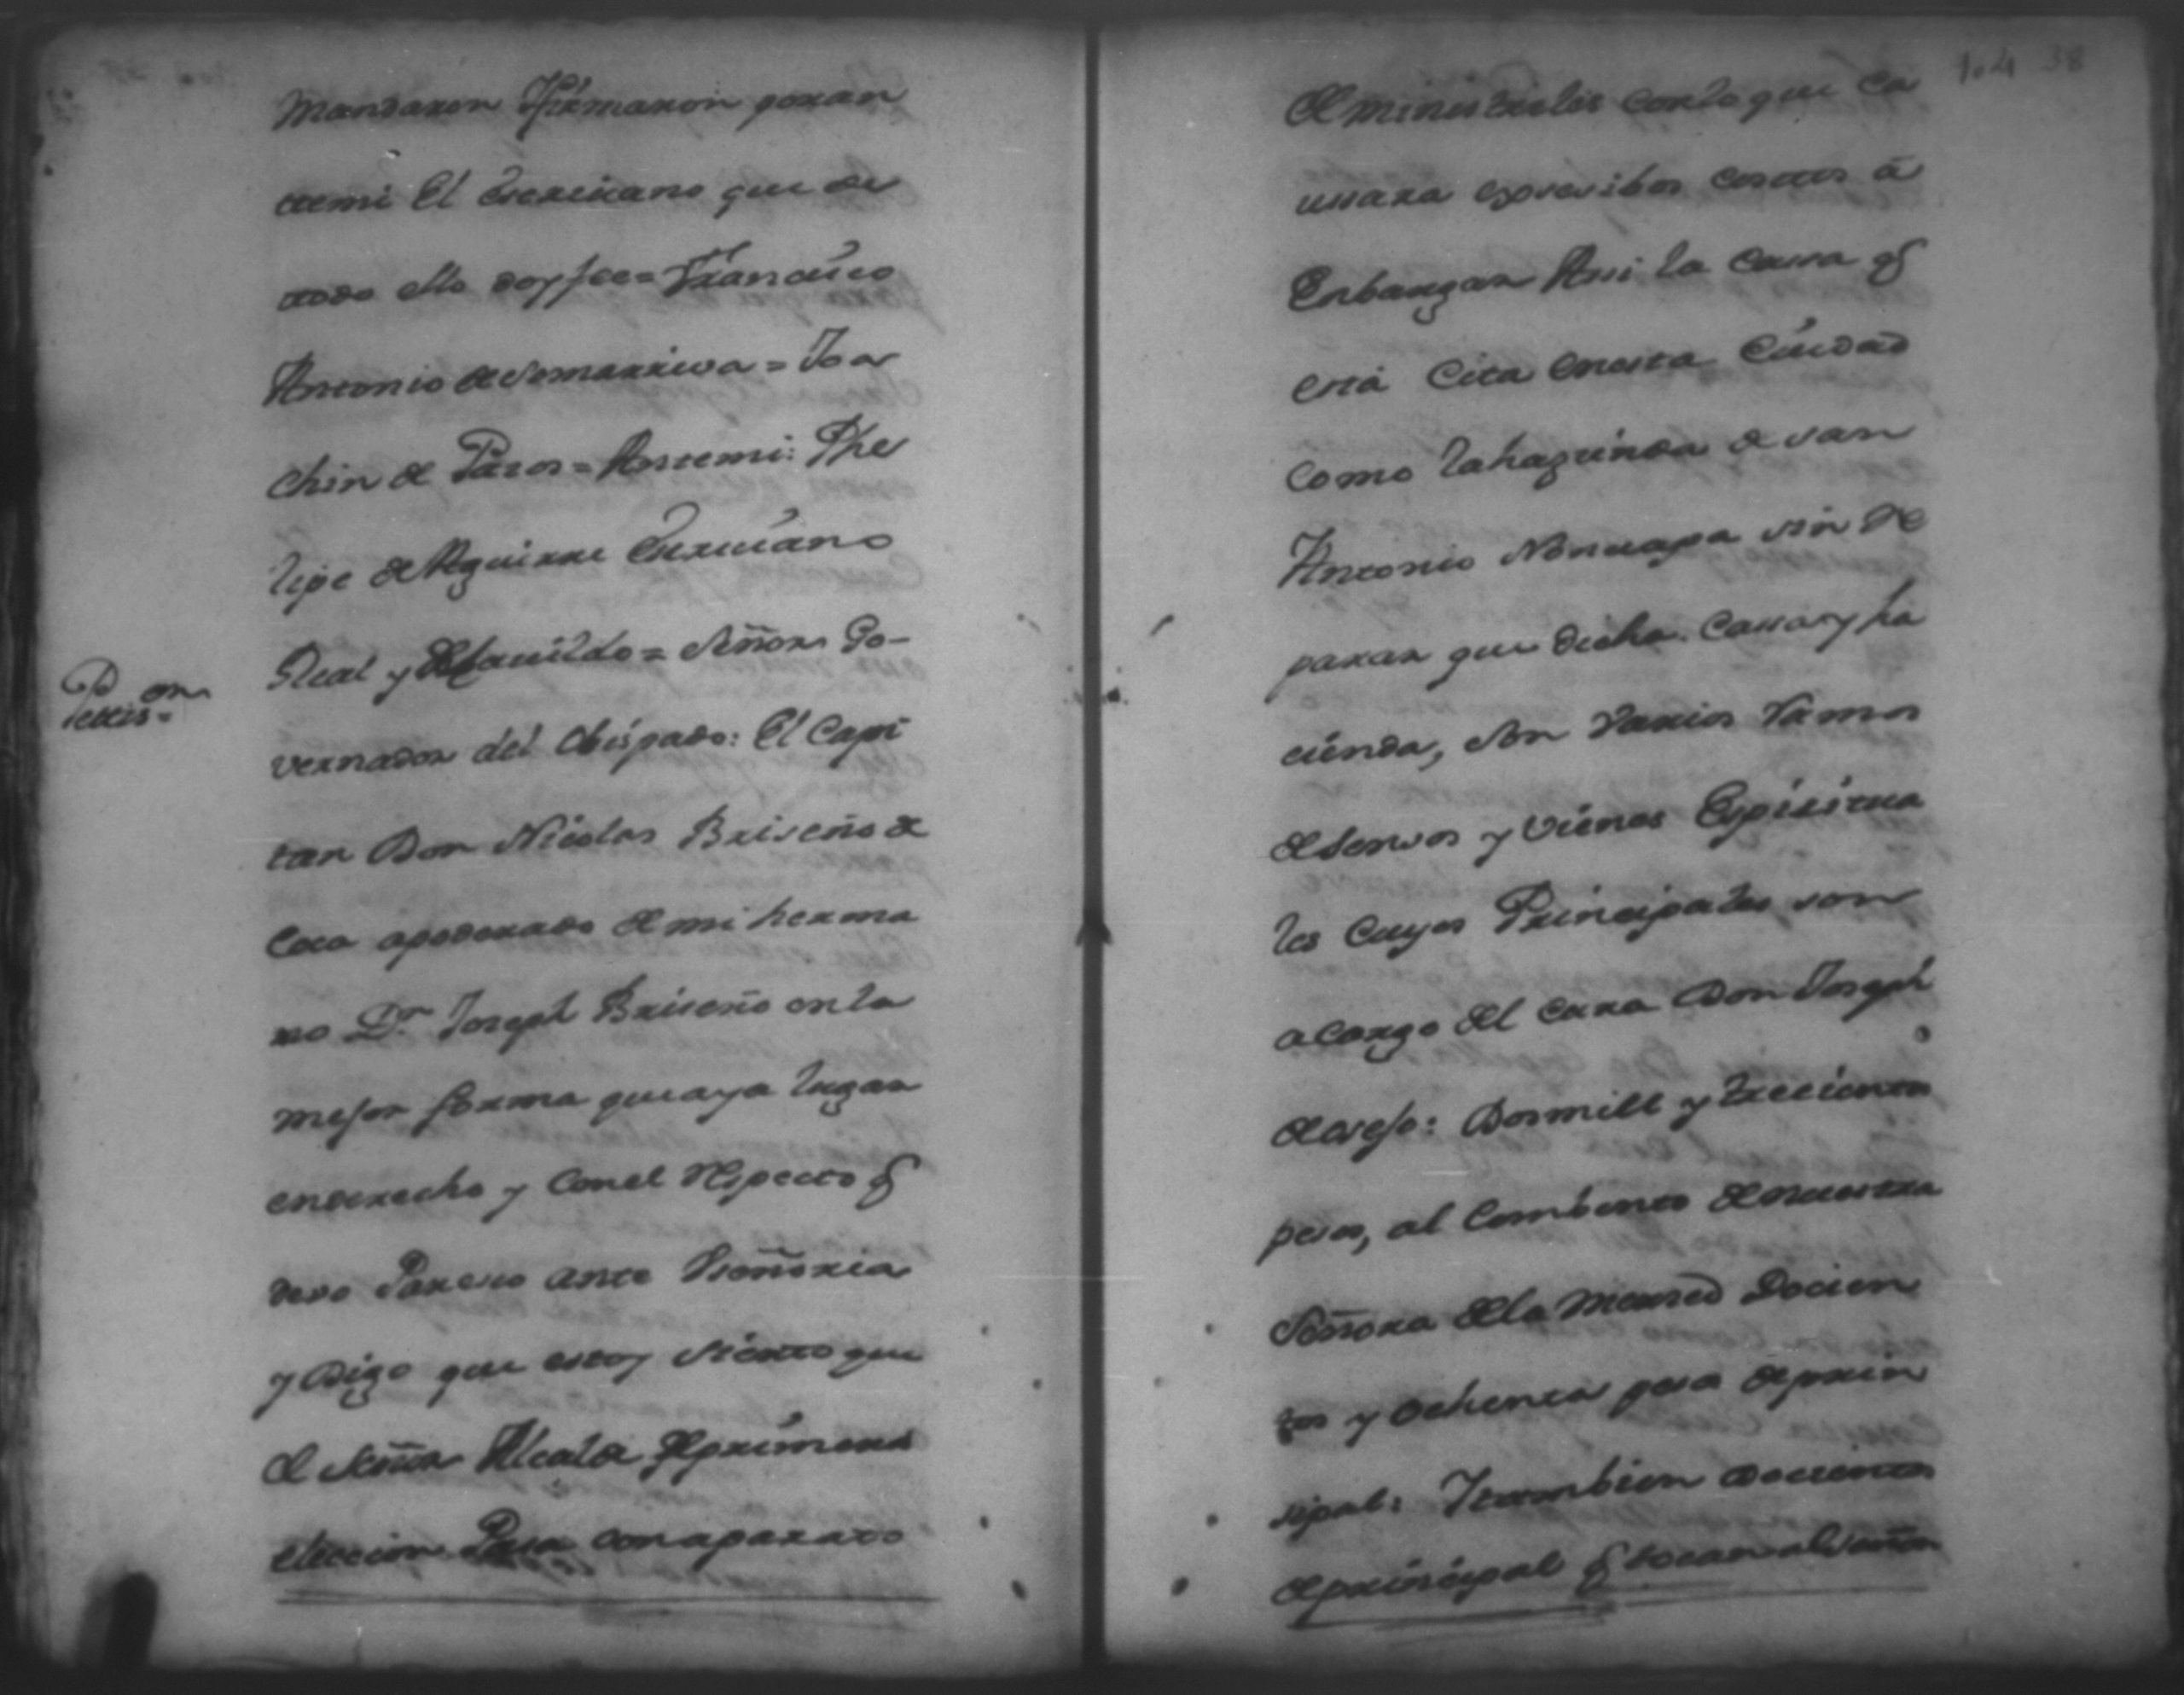 Mandaron Yfirmaron poran
ttemi El Escrivano que de
todo ello doy fee = Francisco
Antonio de Somarriva = Joa
chin de Pasos = Antemi: Phe
lipe de Aguirre Escrivano
Real y de Cavildo = Señor Go-
Petis.on =
vernador del Obispado: El Capi
tan Don Nicolas Briseño de
Coca apoderado de mi herma
no Dn Joseph Briseño en la
mejor forma que aya lugar
en derecho y con el Respecto q
devo Paresco ante Vseñoria
y Digo que estoy sierto que
el señor Alcalde de primera
eleccion Pasa con aparato
104 38
de ministriles con lo que ca
ussara expresibos costos á
Enbargar Assi la Cassa q
está Cita en esta Ciudad
como la hazienda de san
Antonio Nonuapa sin Re
parar que dicha Cassa y ha
cienda, son Varios Ramos
de sensos y Vienes Espiritua
les Cuyos Principales son
a Cargo del Cura Don Joseph
de Vsejo: Dos mill y trecientos
pesos, al Combento de nuestra
Señora de la Merced Docien
tos y ochenta pesos de prin
sipal: Ytambien docientos
de principal q tocan al señor